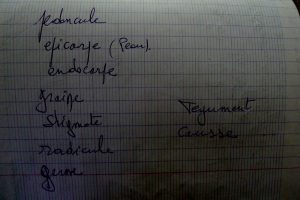 pédoncule
épicarpe (Peau).
endocarpe
graine
Stigmate
radicule
germe
Tegument
Causse